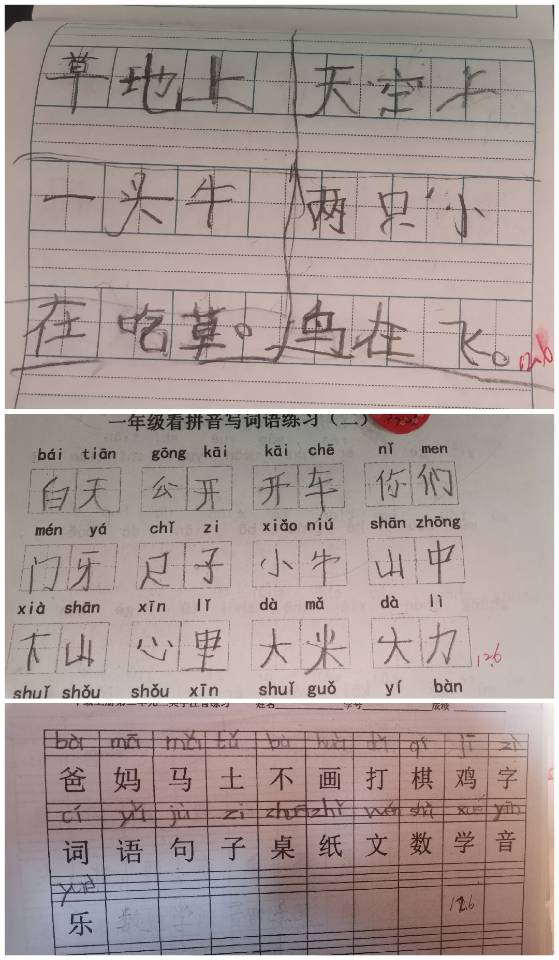 草地上 天空上
一头牛 两只小
在吃草。 鸟在飞。 12.6
一年级看拼音写词语练习（二）
bái tiān gōng kāi kāi chē nǐ men
白天 公开 开车 你们
mén yá chǐ zi xiǎo niú shān zhōng
门牙 尺子 小牛 山中
xià shān xīn lǐ dà mǎ dà lì
下山 心里 大米 大力 12.6
shuǐ shǒu shǒu xīn shuǐ guǒ yí bàn
姓名 学号 成绩
mā mǎ tǔ qí jī zì
爸 妈 马 土 不 画 打 棋 鸡 字
cí yǔ jù zi zhuō zhǐ wén shù xué yīn
词 语 句 子 桌 纸 文 数 学 音
乐 12.6